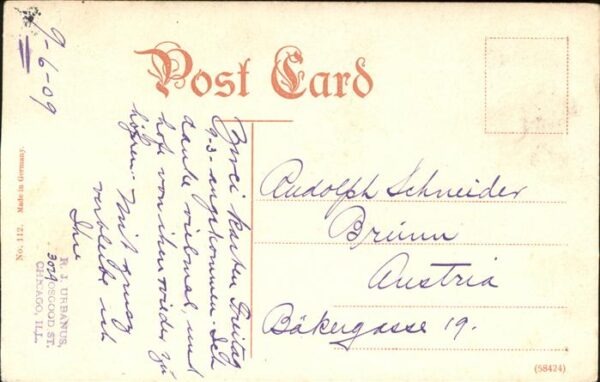 9-6-09
Post Card
Zwei karten Freitag
9-3- angekommen. Ich
danke vielmal, und
hoffe von ihen wieder zu
hören. Mit
verbleibe ich
Ihre
R. J. URBANUS,
3029 OSGOOD ST.
CHICAGO, ILL.
No. 112. Made in Germany.
Rudolph Schneider
Brünn
Austria
Bäkergasse 19.
(58424)